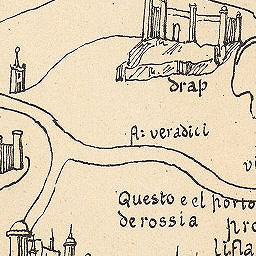 drap
fl: veradici
vi
Questo e el porto
de rossia pro
lifla